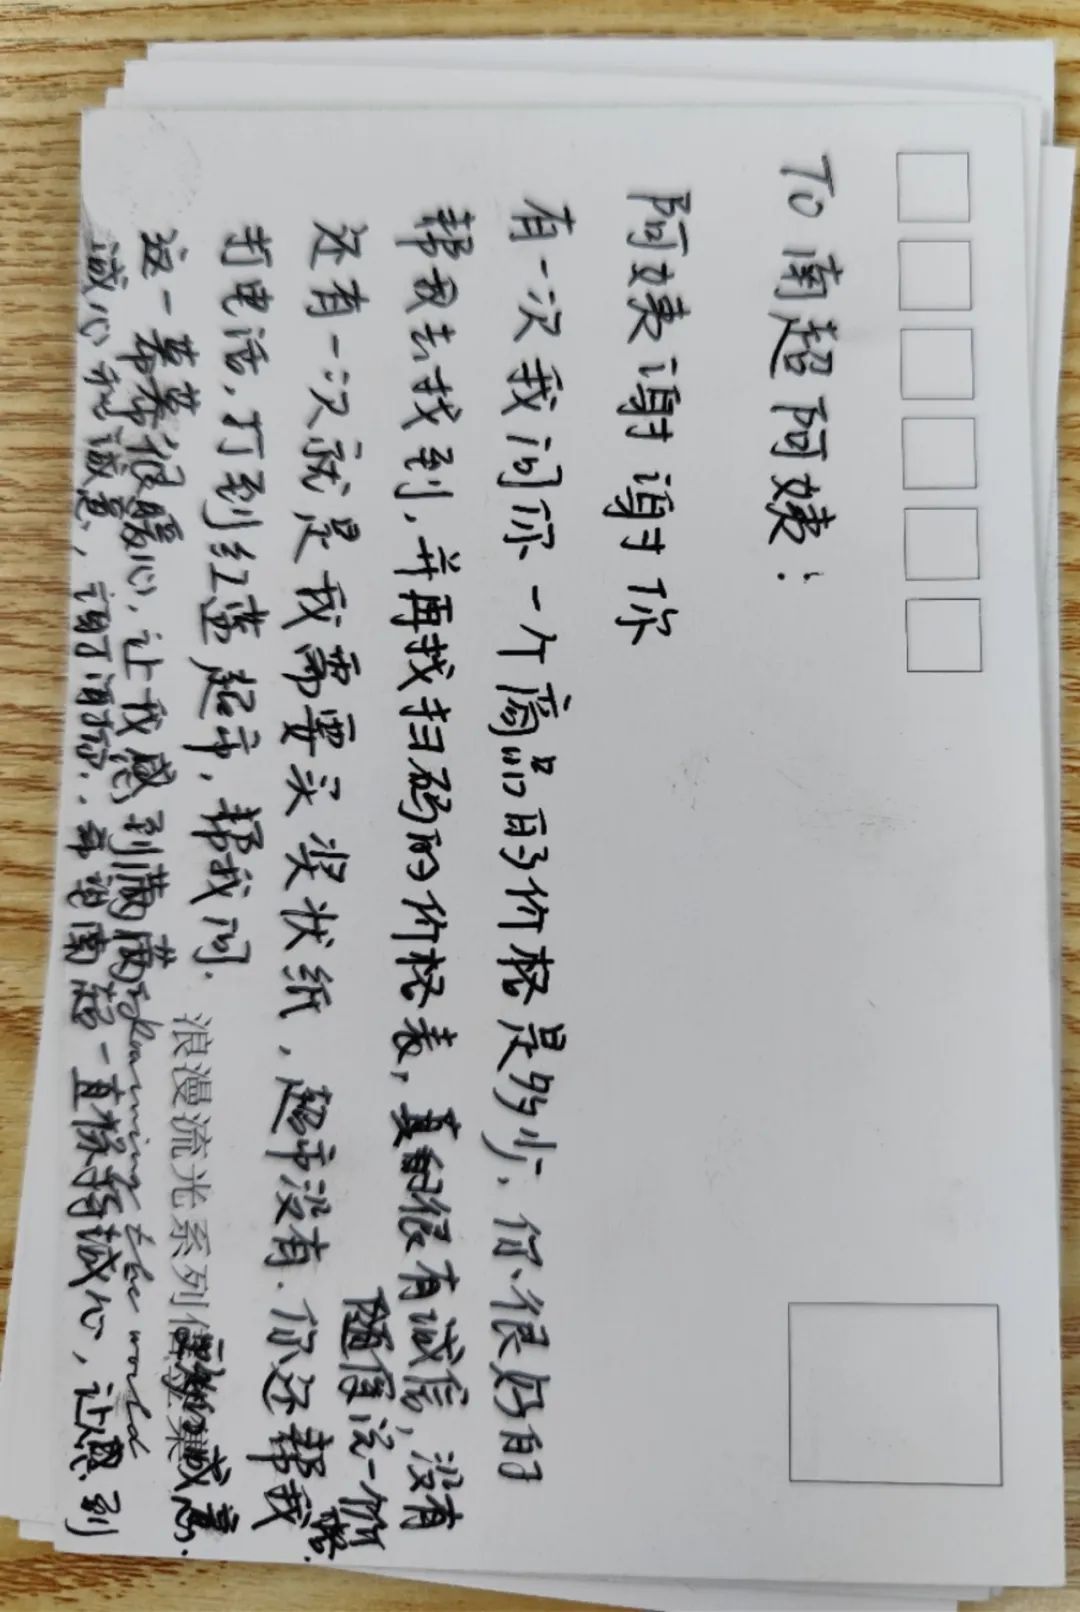 TO 南超阿姨:
阿姨谢谢你
有一次我问你一个商品的价格是多少,你很好的
帮我去找到,并再找扫码的价格表,真的很有诚信,没有
随信说一价格.
还有一次就是我需要买奖状纸,超市没有.你还帮我
打电话,打到红蓝超市,帮我问.
这一幕幕很暖心,让我感到满满
诚意.
诚心和诚意,谢谢你.希望南超一直保持诚心,让感到
浪漫流光系列
the world